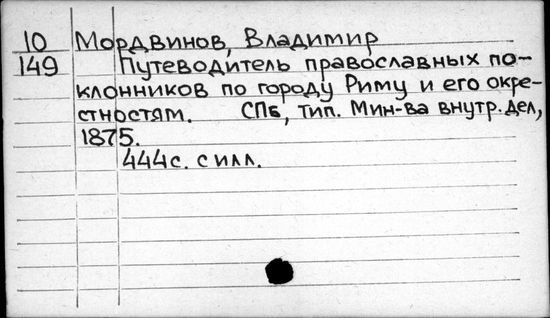 10 Мордвинов, Владимир
149 Путеводитель православных по-
клонников по городу Риму и его окре-
стностям. СПб, тип. Мин-ва внутр. дел,
1875.
444с. с илл.